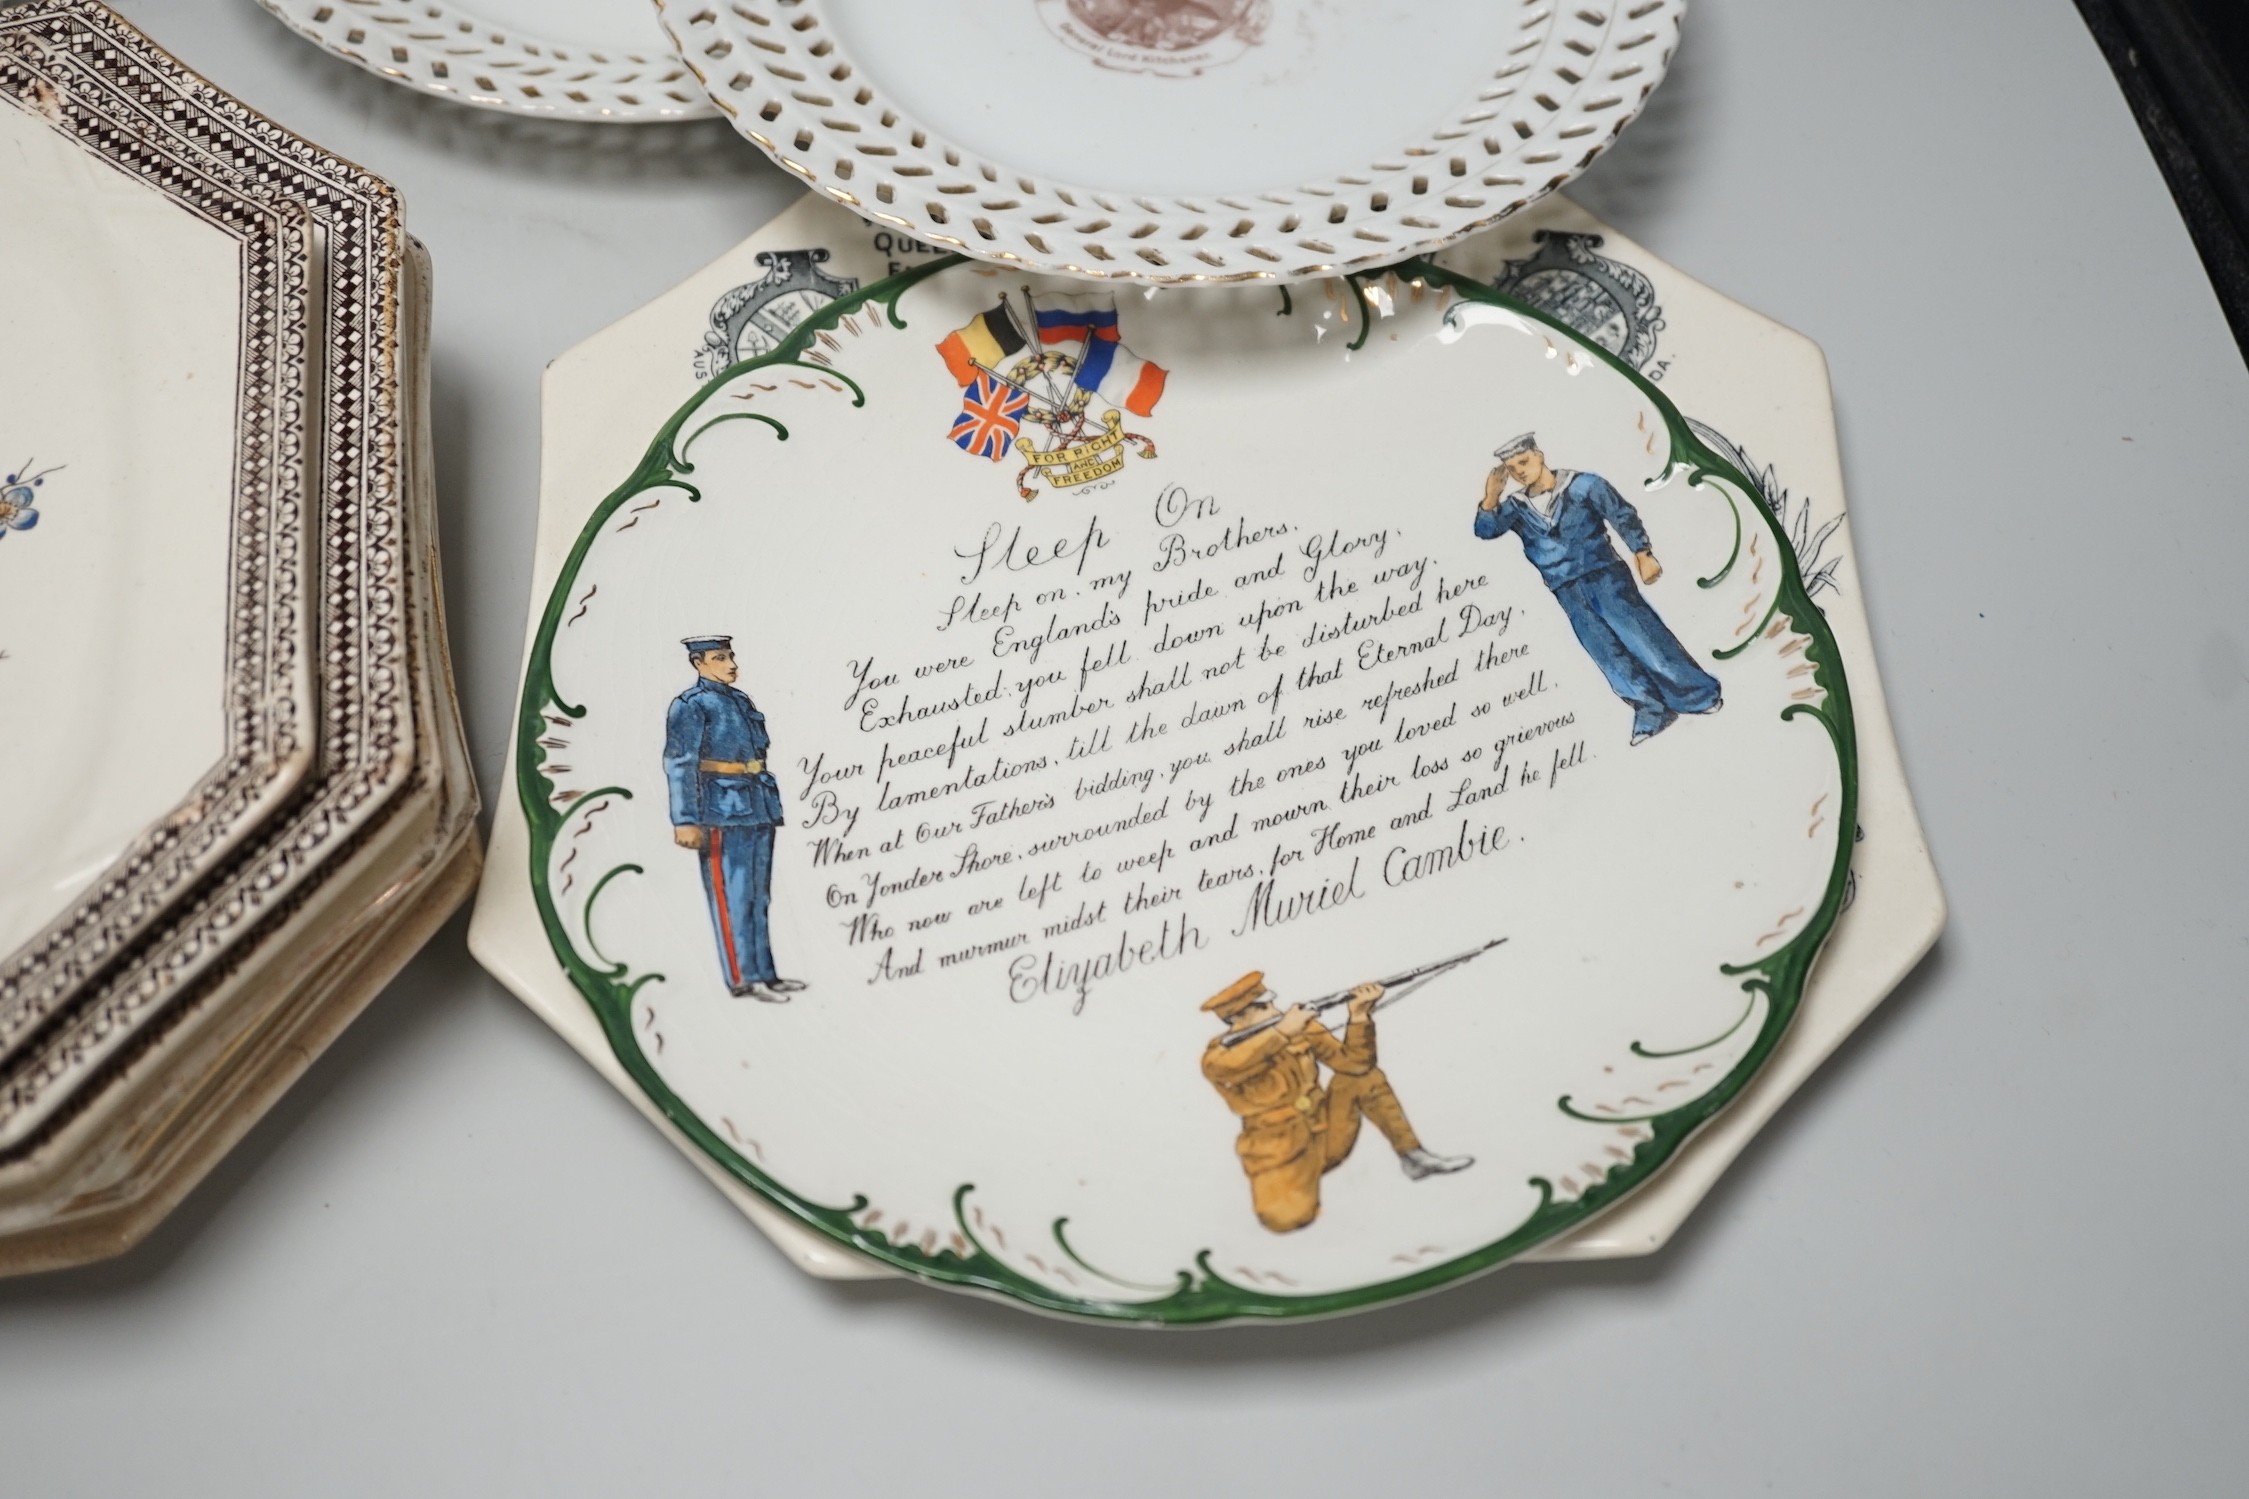 General Lord Kitchener.
DA.
AUS
FOR RIGHT
AND
FREEDOM
Sleep On
Sleep on, my Brothers.
You were England's pride and Glory,
Exhausted, you fell down upon the way.
Your peaceful slumber shall not be disturbed here
By lamentations, till the dawn of that Eternal Day,
When at Our Father's bidding, you shall rise refreshed there
On Yonder Shore, surrounded by the ones you loved so well.
Who now are left to weep and mourn their loss so grievous
And murmur midst their tears, for Home and Land he fell.
Elizabeth Muriel Cambie.